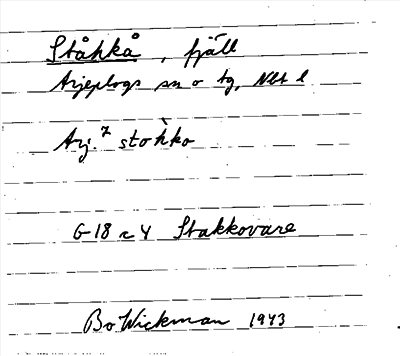 Ståhkå, fjäll
Arjeplogs sn o tg, Nbt l
Arj.⁷ stòhko
G-18 r 4 Stakkovare
Bo Wickman 1943